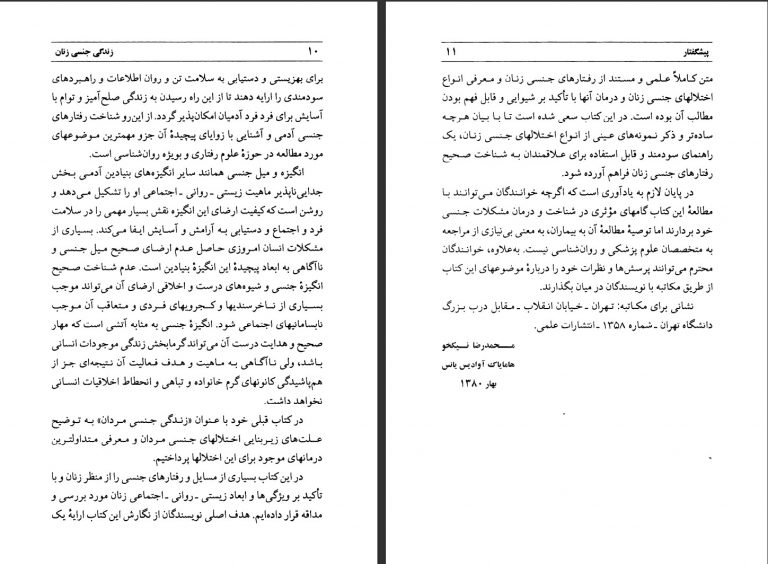 ۱۰ زندگی جنسی زنان
برای بهزیستی و دستیابی به سلامت تن و روان اطلاعات و راهبردهای
سودمندی را ارایه دهند تا از این راه رسیدن به زندگی صلح‌آمیز و توام با
آسایش برای فرد فرد آدمیان امکان‌پذیر گردد. از این‌رو شناخت رفتارهای
جنسی آدمی و آشنایی با زوایای پیچیدهٔ آن جزو مهمترین موضوعهای
مورد مطالعه در حوزهٔ علوم رفتاری و بویژه روان‌شناسی است.
انگیزه و میل جنسی همانند سایر انگیزه‌های بنیادین آدمی بخش
جدایی‌ناپذیر ماهیت زیستی ـ روانی ـ اجتماعی او را تشکیل می‌دهد و
روشن است که کیفیت ارضای این انگیزه نقش بسیار مهمی را در سلامت
فرد و اجتماع و دستیابی به آرامش و آسایش ایفا می‌کند. بسیاری از
مشکلات انسان امروزی حاصل عدم ارضای صحیح میل جنسی و
ناآگاهی به ابعاد پیچیدهٔ این انگیزهٔ بنیادین است. عدم شناخت صحیح
انگیزهٔ جنسی و شیوه‌های درست و اخلاقی ارضای آن می‌تواند موجب
بسیاری از ناخرسندیها و کجرویهای فردی و متعاقب آن موجب
نابسامانیهای اجتماعی شود. انگیزهٔ جنسی به مثابه آتشی است که مهار
صحیح و هدایت درست آن می‌تواند گرمابخش زندگی موجودات انسانی
باشد، ولی ناآگاهی به ماهیت و هدف فعالیت آن نتیجه‌ای جز از
هم‌پاشیدگی کانونهای گرم خانواده و تباهی و انحطاط اخلاقیات انسانی
نخواهد داشت.
در کتاب قبلی خود با عنوان «زندگی جنسی مردان» به توضیح
علت‌های زیربنایی اختلالهای جنسی مردان و معرفی متداولترین
درمانهای موجود برای این اختلالها پرداختیم.
در این کتاب بسیاری از مسایل و رفتارهای جنسی را از منظر زنان و با
تأکید بر ویژگی‌ها و ابعاد زیستی ـ روانی ـ اجتماعی زنان مورد بررسی و
مداقه قرار داده‌ایم. هدف اصلی نویسندگان از نگارش این کتاب ارایهٔ یک
پیشگفتار ۱۱
متن کاملاً علمی و مستند از رفتارهای جنسی زنان و معرفی انواع
اختلالهای جنسی زنان و درمان آنها با تأکید بر شیوایی و قابل فهم بودن
مطالب آن بوده است. در این کتاب سعی شده است تا با بیان هرچه
ساده‌تر و ذکر نمونه‌های عینی از انواع اختلالهای جنسی زنان، یک
راهنمای سودمند و قابل استفاده برای علاقمندان به شناخت صحیح
رفتارهای جنسی زنان فراهم آورده شود.
در پایان لازم به یادآوری است که اگرچه خوانندگان می‌توانند با
مطالعهٔ این کتاب گامهای مؤثری در شناخت و درمان مشکلات جنسی
خود بردارند اما توصیهٔ مطالعهٔ آن به بیماران، به معنی بی‌نیازی از مراجعه
به متخصصان علوم پزشکی و روان‌شناسی نیست. به‌علاوه، خوانندگان
محترم می‌توانند پرسش‌ها و نظرات خود را دربارهٔ موضوعهای این کتاب
از طریق مکاتبه با نویسندگان در میان بگذارند.
نشانی برای مکاتبه: تهران ـ خیابان انقلاب ـ مقابل درب بزرگ
دانشگاه تهران ـ شماره ۱۳۵۸ ـ انتشارات علمی.
محمدرضا نیکخو
هامایاک آوادیس یانس
بهار ۱۳۸۰